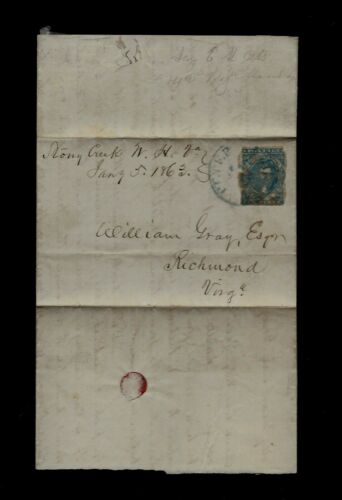 Stony Creek W. H. Va
Jany 5. 1863.
William Gray, Esqr
Richmond
Virga